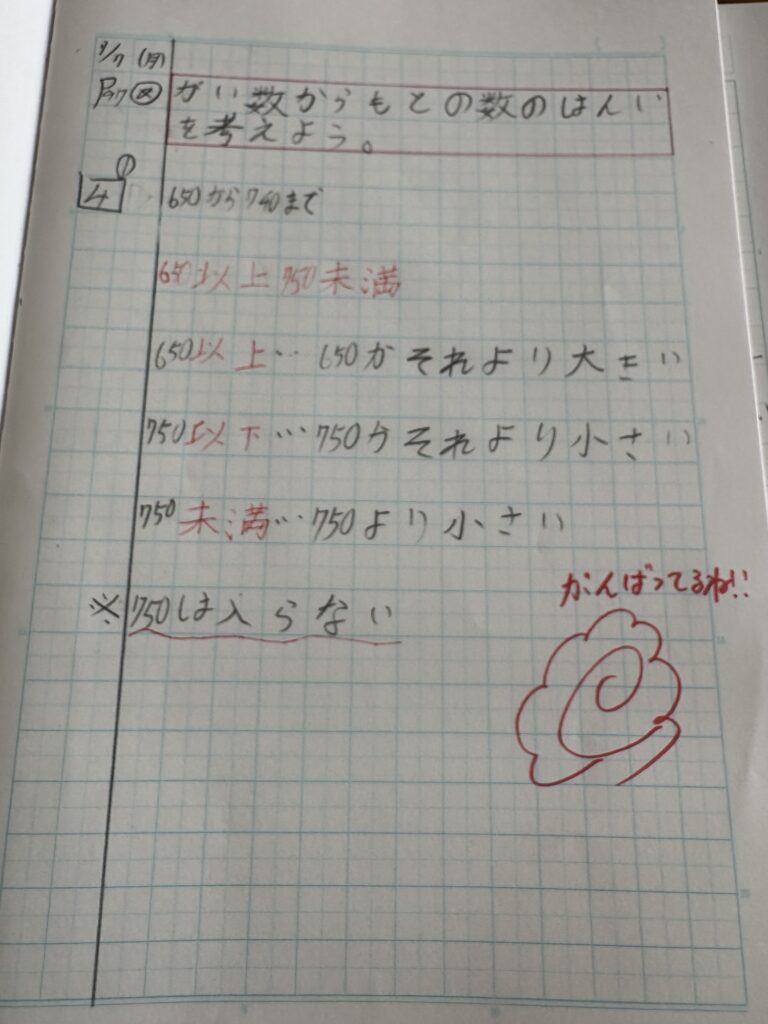 9/7 (月)
P97 め がい数からもとの数のはんい
を考えよう。
4 ① 650から740まで
650以上750未満
650以上… 650かそれより大きい
750以下…750かそれより小さい
750未満…750より小さい
※750は入らない
がんばってるね!!